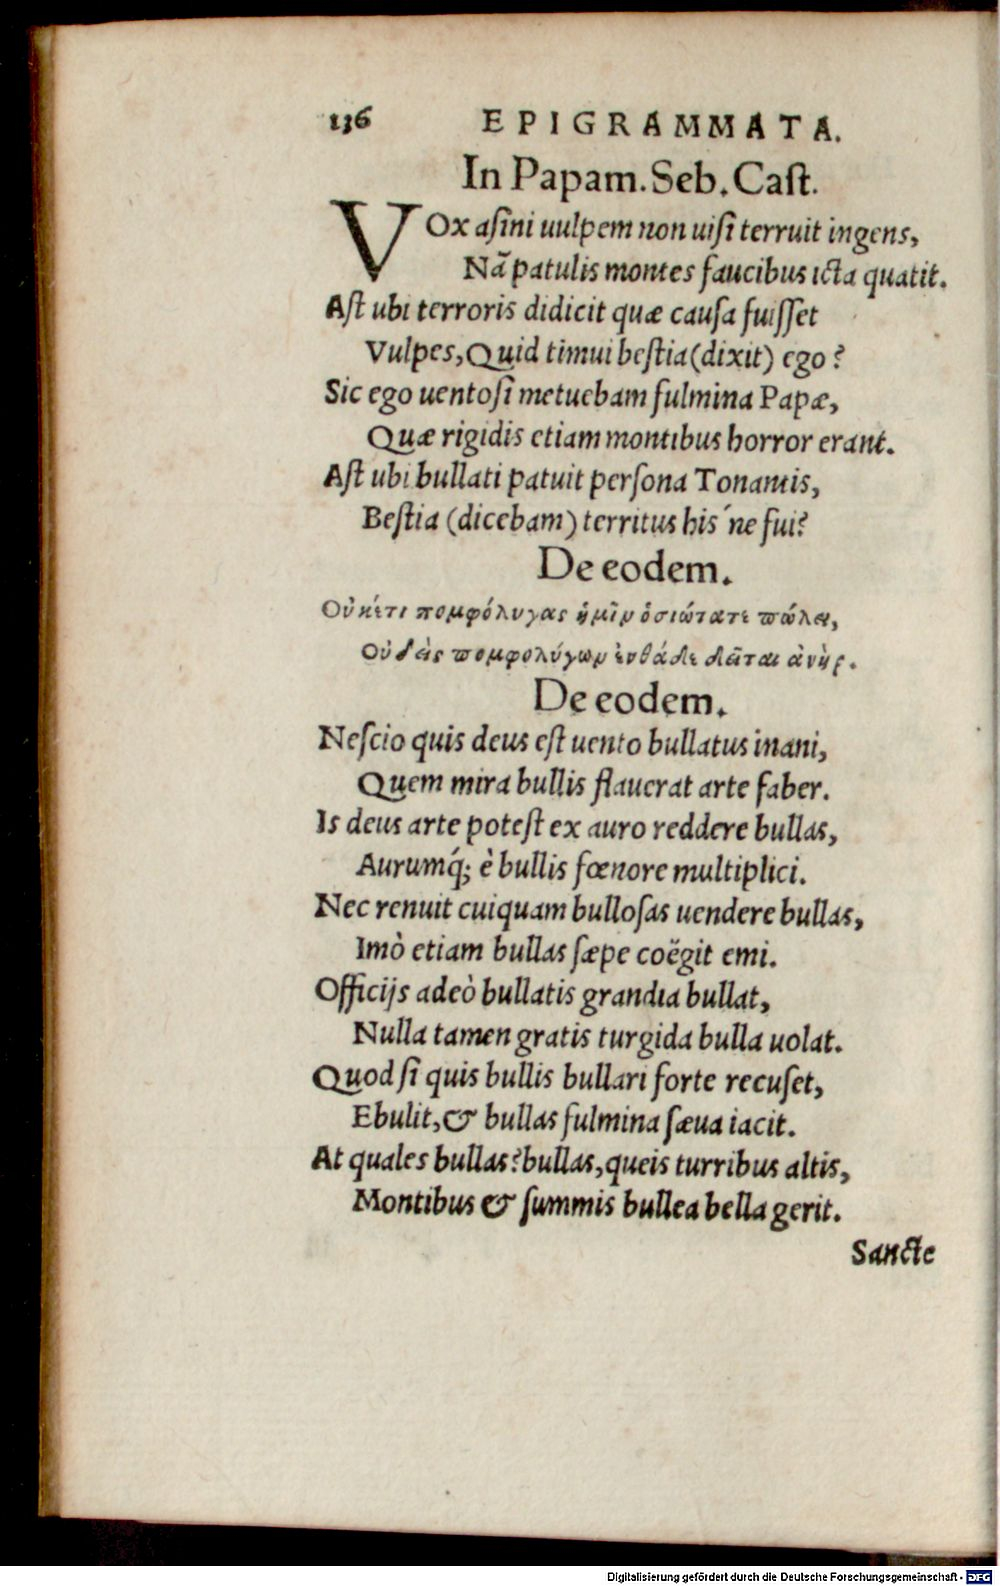 136 EPIGRAMMATA.
In Papam. Seb. Cast.
VOx asini uulpem non uisi terruit ingens,
Nã patulis montes faucibus icta quatit.
Ast ubi terroris didicit quæ causa fuisset
Vulpes, Quid timui bestia (dixit) ego?
Sic ego uentosi metuebam fulmina Papæ,
Quæ rigidis etiam montibus horror erant.
Ast ubi bullati patuit persona Tonantis,
Bestia (dicebam) territus his´ne fui?
De eodem.
Οὐκέτι πομφόλυγας ἡμῖν ὁσιώτατε πώλει,
Οὐδεὶς πομφολύγων ἐνθάδε δεῖται ἀνὴρ.
De eodem.
Nescio quis deus est uento bullatus inani,
Quem mira bullis flauerat arte faber.
Is deus arte potest ex auro reddere bullas,
Aurumq́; è bullis fœnore multiplici.
Nec renuit cuiquam bullosas uendere bullas,
Imò etiam bullas sæpe coëgit emi.
Officijs adeò bullatis grandia bullat,
Nulla tamen gratis turgida bulla uolat.
Quod si quis bullis bullari forte recuset,
Ebulit, & bullas fulmina sæua iacit.
At quales bullas? bullas, queis turribus altis,
Montibus & summis bullea bella gerit.
Sancte
Digitalisierung gefördert durch die Deutsche Forschungsgemeinschaft - DFG